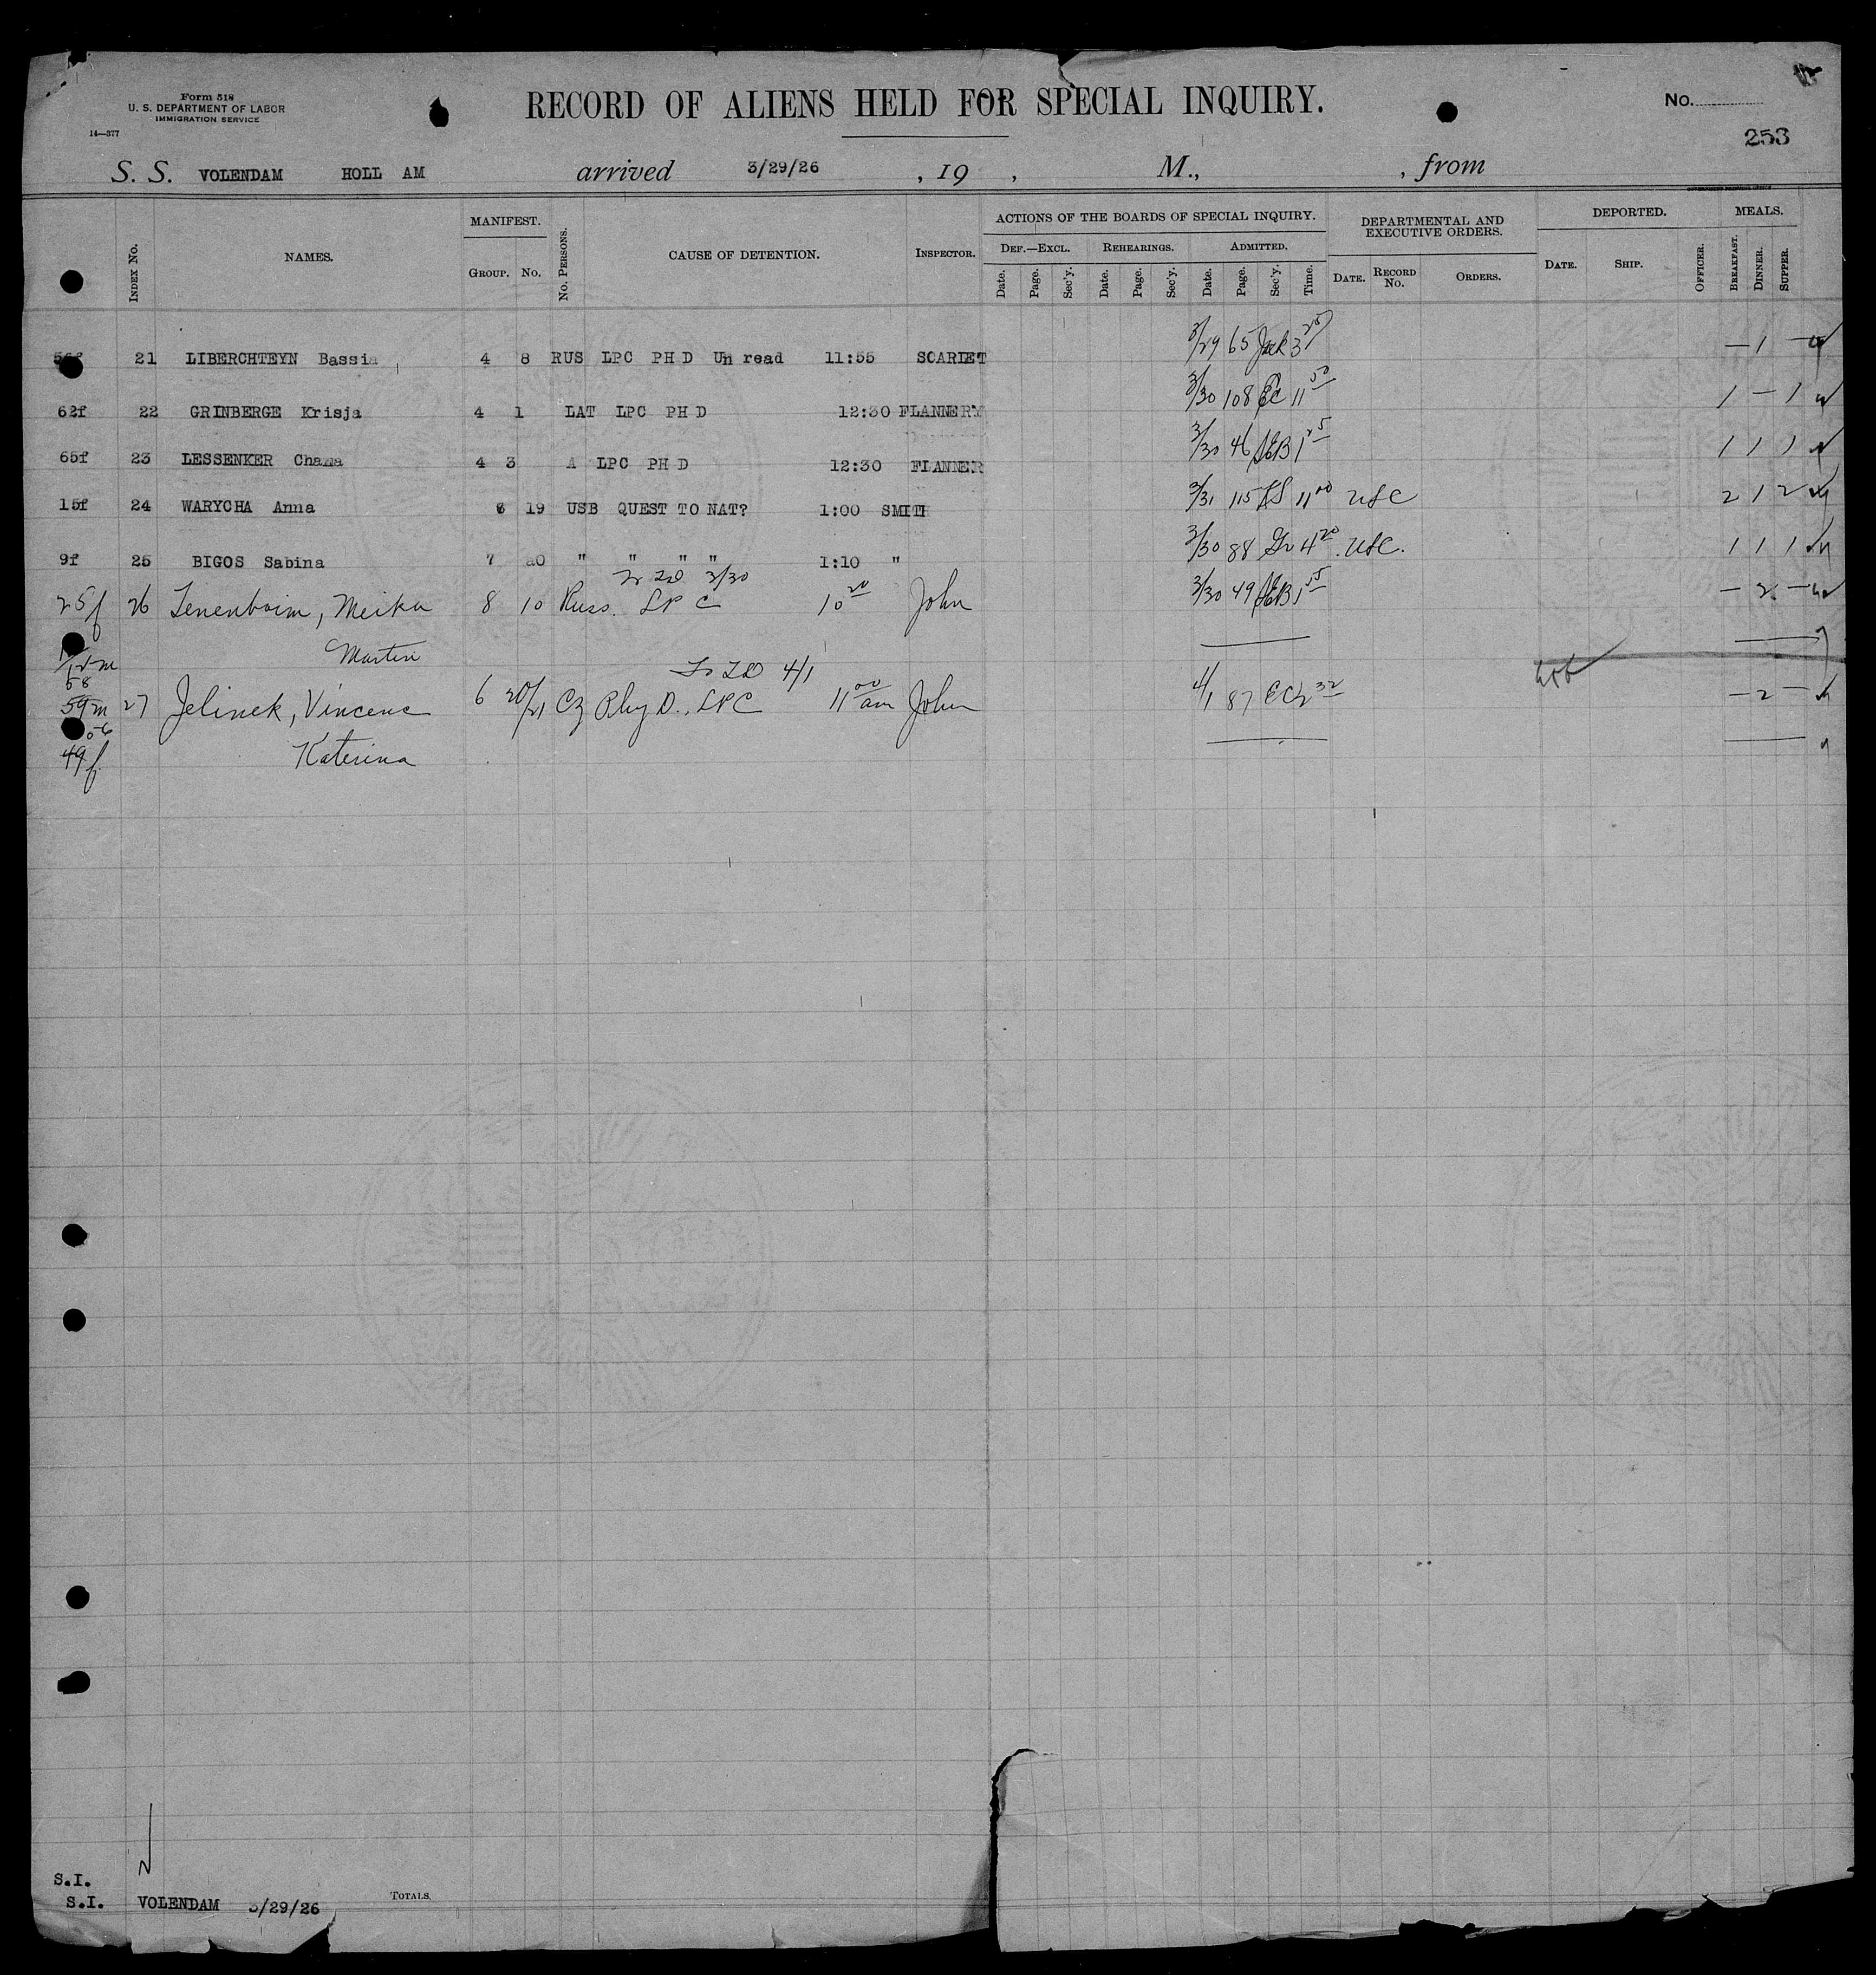 Form 518
U. S. DEPARTMENT OF LABOR
IMMIGRATION SERVICE
14—377
RECORD OF ALIENS HELD FOR SPECIAL INQUIRY.
No.
253
S. S. VOLENDAM HOLL AM arrived 3/29/26 , 19 , M., , from
INDEX No. NAMES. MANIFEST. GROUP. No. No. PERSONS. CAUSE OF DETENTION. INSPECTOR. ACTIONS OF THE BOARDS OF SPECIAL INQUIRY. DEF.—EXCL. Date. Page. Sec'y. REHEARINGS. Date. Page. Sec'y. ADMITTED. Date. Page. Sec'y. Time. DEPARTMENTAL AND EXECUTIVE ORDERS. DATE. RECORD No. ORDERS. DEPORTED. DATE. SHIP. OFFICER. MEALS. BREAKFAST. DINNER. SUPPER.
21 LIBERCHTEYN Bassia 4 8 RUS LPC PH D Un read 11:55 SCARLET 3/29 65 3 25 — 1 —
62f 22 GRINBERGE Krisja 4 1 LAT LPC PH D 12:30 FLANNERY 3/30 108 EC 11 50 1 — 1
65f 23 LESSENKER Chana 4 3 A LPC PH D 12:30 FLANNER 3/30 46 AEB 1 25 1 1 1
15f 24 WARYCHA Anna 6 19 USB QUEST TO NAT? 1:00 SMITH 3/31 115 11 00 USC 2 1 2
9f 25 BIGOS Sabina 7 20 " " " " 1:10 " 3/30 88 4 20 USC. 1 1 1
3/30
25f 26 Tenenboim, Meika 8 10 Russ. LPC 10 20 John 3/30 49 AEB 1 55 — 2 —
Martin
To TD 4/1
58
59m 27 Jelinek, Vincenc 6 20/21 Cz Phy D., LPC 11 00 am John 4/1 87 EC 2 32 — 2 —
49f Katerina
S.I.
S.I. VOLENDAM 3/29/26 TOTALS.